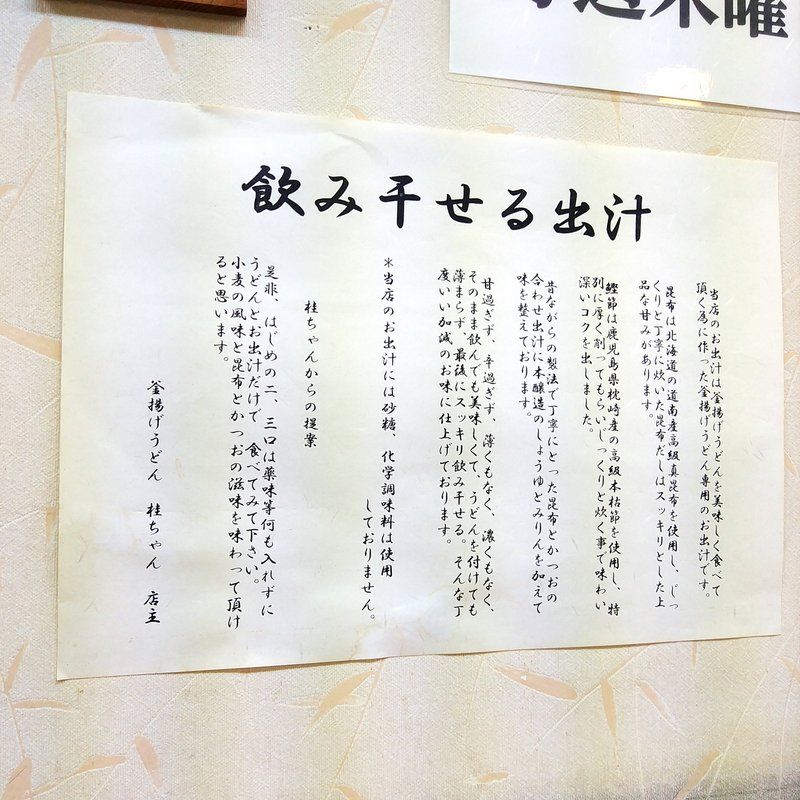 毎週木曜
飲み干せる出汁
当店のお出汁は釜揚げうどんを美味しく食べて
頂く為に作った釜揚げうどん専用のお出汁です。
昆布は北海道の道南産高級真昆布を使用し、じっ
くりと丁寧に炊いた昆布だしはスッキリとした上
品な甘みがあります。
鰹節は鹿児島県枕崎産の高級本枯節を使用し、特
別に厚く削ってもらいじっくりと炊く事で味わい
深いコクを出しました。
昔ながらの製法で丁寧にとった昆布とかつおの
合わせ出汁に本醸造のしょうゆとみりんを加えて
味を整えております。
甘過ぎず、辛過ぎず、薄くもなく、濃くもなく、
そのまま飲んでも美味しくて、うどんを付けても
薄まらず、最後にスッキリ飲み干せる。そんな丁
度いい加減のお味に仕上げております。
*当店のお出汁には砂糖、化学調味料は使用
しておりません。
桂ちゃんからの提案
是非、はじめの二、三口は薬味等何も入れずに
うどんとお出汁だけで 食べてみて下さい。
小麦の風味と昆布とかつおの滋味を味わって頂け
ると思います。
釜揚げうどん 桂ちゃん 店主